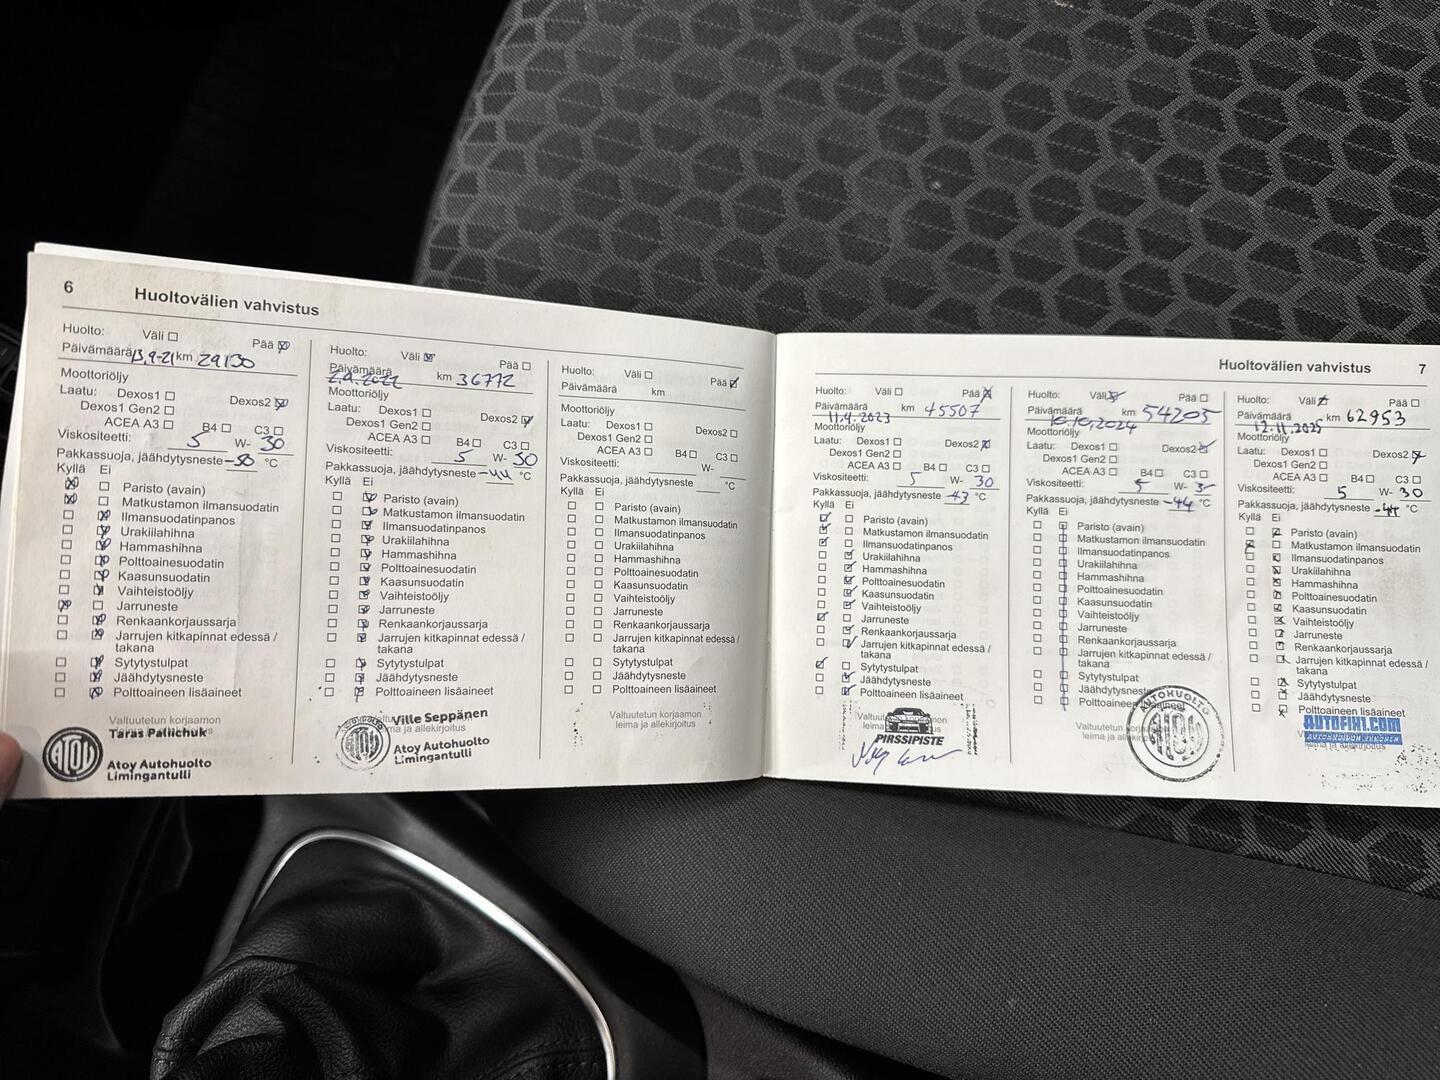 6
Huoltovälien vahvistus
Huolto: Väli Pää
Päivämäärä 13.9-21 km 29130
Moottoriöljy
Laatu: Dexos1 Dexos2
Dexos1 Gen2
ACEA A3 B4 C3
Viskositeetti: 5 W- 30
Pakkassuoja, jäähdytysneste -50 °C
Kyllä Ei
Paristo (avain)
Matkustamon ilmansuodatin
Ilmansuodatinpanos
Urakiilahihna
Hammashihna
Polttoainesuodatin
Kaasunsuodatin
Vaihteistoöljy
Jarruneste
Renkaankorjaussarja
Jarrujen kitkapinnat edessä /
takana
Sytytystulpat
Jäähdytysneste
Polttoaineen lisäaineet
Valtuutetun korjaamon
Taras Paliichuk
ATOY
Atoy Autohuolto
Limingantulli
Huolto: Väli Pää
Päivämäärä 2.9.2022 km 36772
Moottoriöljy
Laatu: Dexos1 Dexos2
Dexos1 Gen2
ACEA A3 B4 C3
Viskositeetti: 5 W- 30
Pakkassuoja, jäähdytysneste -44 °C
Kyllä Ei
Paristo (avain)
Matkustamon ilmansuodatin
Ilmansuodatinpanos
Urakiilahihna
Hammashihna
Polttoainesuodatin
Kaasunsuodatin
Vaihteistoöljy
Jarruneste
Renkaankorjaussarja
Jarrujen kitkapinnat edessä /
takana
Sytytystulpat
Jäähdytysneste
Polttoaineen lisäaineet
Ville Seppänen
leima ja allekirjoitus
Atoy Autohuolto
Limingantulli
Huolto: Väli Pää
Päivämäärä km
Moottoriöljy
Laatu: Dexos1 Dexos2
Dexos1 Gen2
ACEA A3 B4 C3
Viskositeetti: W-
Pakkassuoja, jäähdytysneste °C
Kyllä Ei
Paristo (avain)
Matkustamon ilmansuodatin
Ilmansuodatinpanos
Urakiilahihna
Hammashihna
Polttoainesuodatin
Kaasunsuodatin
Vaihteistoöljy
Jarruneste
Renkaankorjaussarja
Jarrujen kitkapinnat edessä /
takana
Sytytystulpat
Jäähdytysneste
Polttoaineen lisäaineet
Valtuutetun korjaamon
leima ja allekirjoitus
Huoltovälien vahvistus
7
Huolto: Väli Pää
Päivämäärä 11.4.2023 km 45507
Moottoriöljy
Laatu: Dexos1 Dexos2
Dexos1 Gen2
ACEA A3 B4 C3
Viskositeetti: 5 W- 30
Pakkassuoja, jäähdytysneste -43 °C
Kyllä Ei
Paristo (avain)
Matkustamon ilmansuodatin
Ilmansuodatinpanos
Urakiilahihna
Hammashihna
Polttoainesuodatin
Kaasunsuodatin
Vaihteistoöljy
Jarruneste
Renkaankorjaussarja
Jarrujen kitkapinnat edessä /
takana
Sytytystulpat
Jäähdytysneste
Polttoaineen lisäaineet
PIRSSIPISTE
Huolto: Väli Pää
Päivämäärä 10.10.2024 km 54205
Moottoriöljy
Laatu: Dexos1 Dexos2
Dexos1 Gen2
ACEA A3 B4 C3
Viskositeetti: 5 W-
Pakkassuoja, jäähdytysneste -44 °C
Kyllä Ei
Paristo (avain)
Matkustamon ilmansuodatin
Ilmansuodatinpanos
Urakiilahihna
Hammashihna
Polttoainesuodatin
Kaasunsuodatin
Vaihteistoöljy
Jarruneste
Renkaankorjaussarja
Jarrujen kitkapinnat edessä /
takana
Sytytystulpat
Jäähdytysneste
Polttoaineen lisäaineet
AUTOHUOLTO
ATOY
Huolto: Väli Pää
Päivämäärä 12.11.2025 km 62953
Moottoriöljy
Laatu: Dexos1 Dexos2
Dexos1 Gen2
ACEA A3 B4 C3
Viskositeetti: 5 W- 30
Pakkassuoja, jäähdytysneste -44 °C
Kyllä Ei
Paristo (avain)
Matkustamon ilmansuodatin
Ilmansuodatinpanos
Urakiilahihna
Hammashihna
Polttoainesuodatin
Kaasunsuodatin
Vaihteistoöljy
Jarruneste
Renkaankorjaussarja
Jarrujen kitkapinnat edessä /
takana
Sytytystulpat
Jäähdytysneste
Polttoaineen lisäaineet
AUTOFIX1.COM
leima ja allekirjoitus